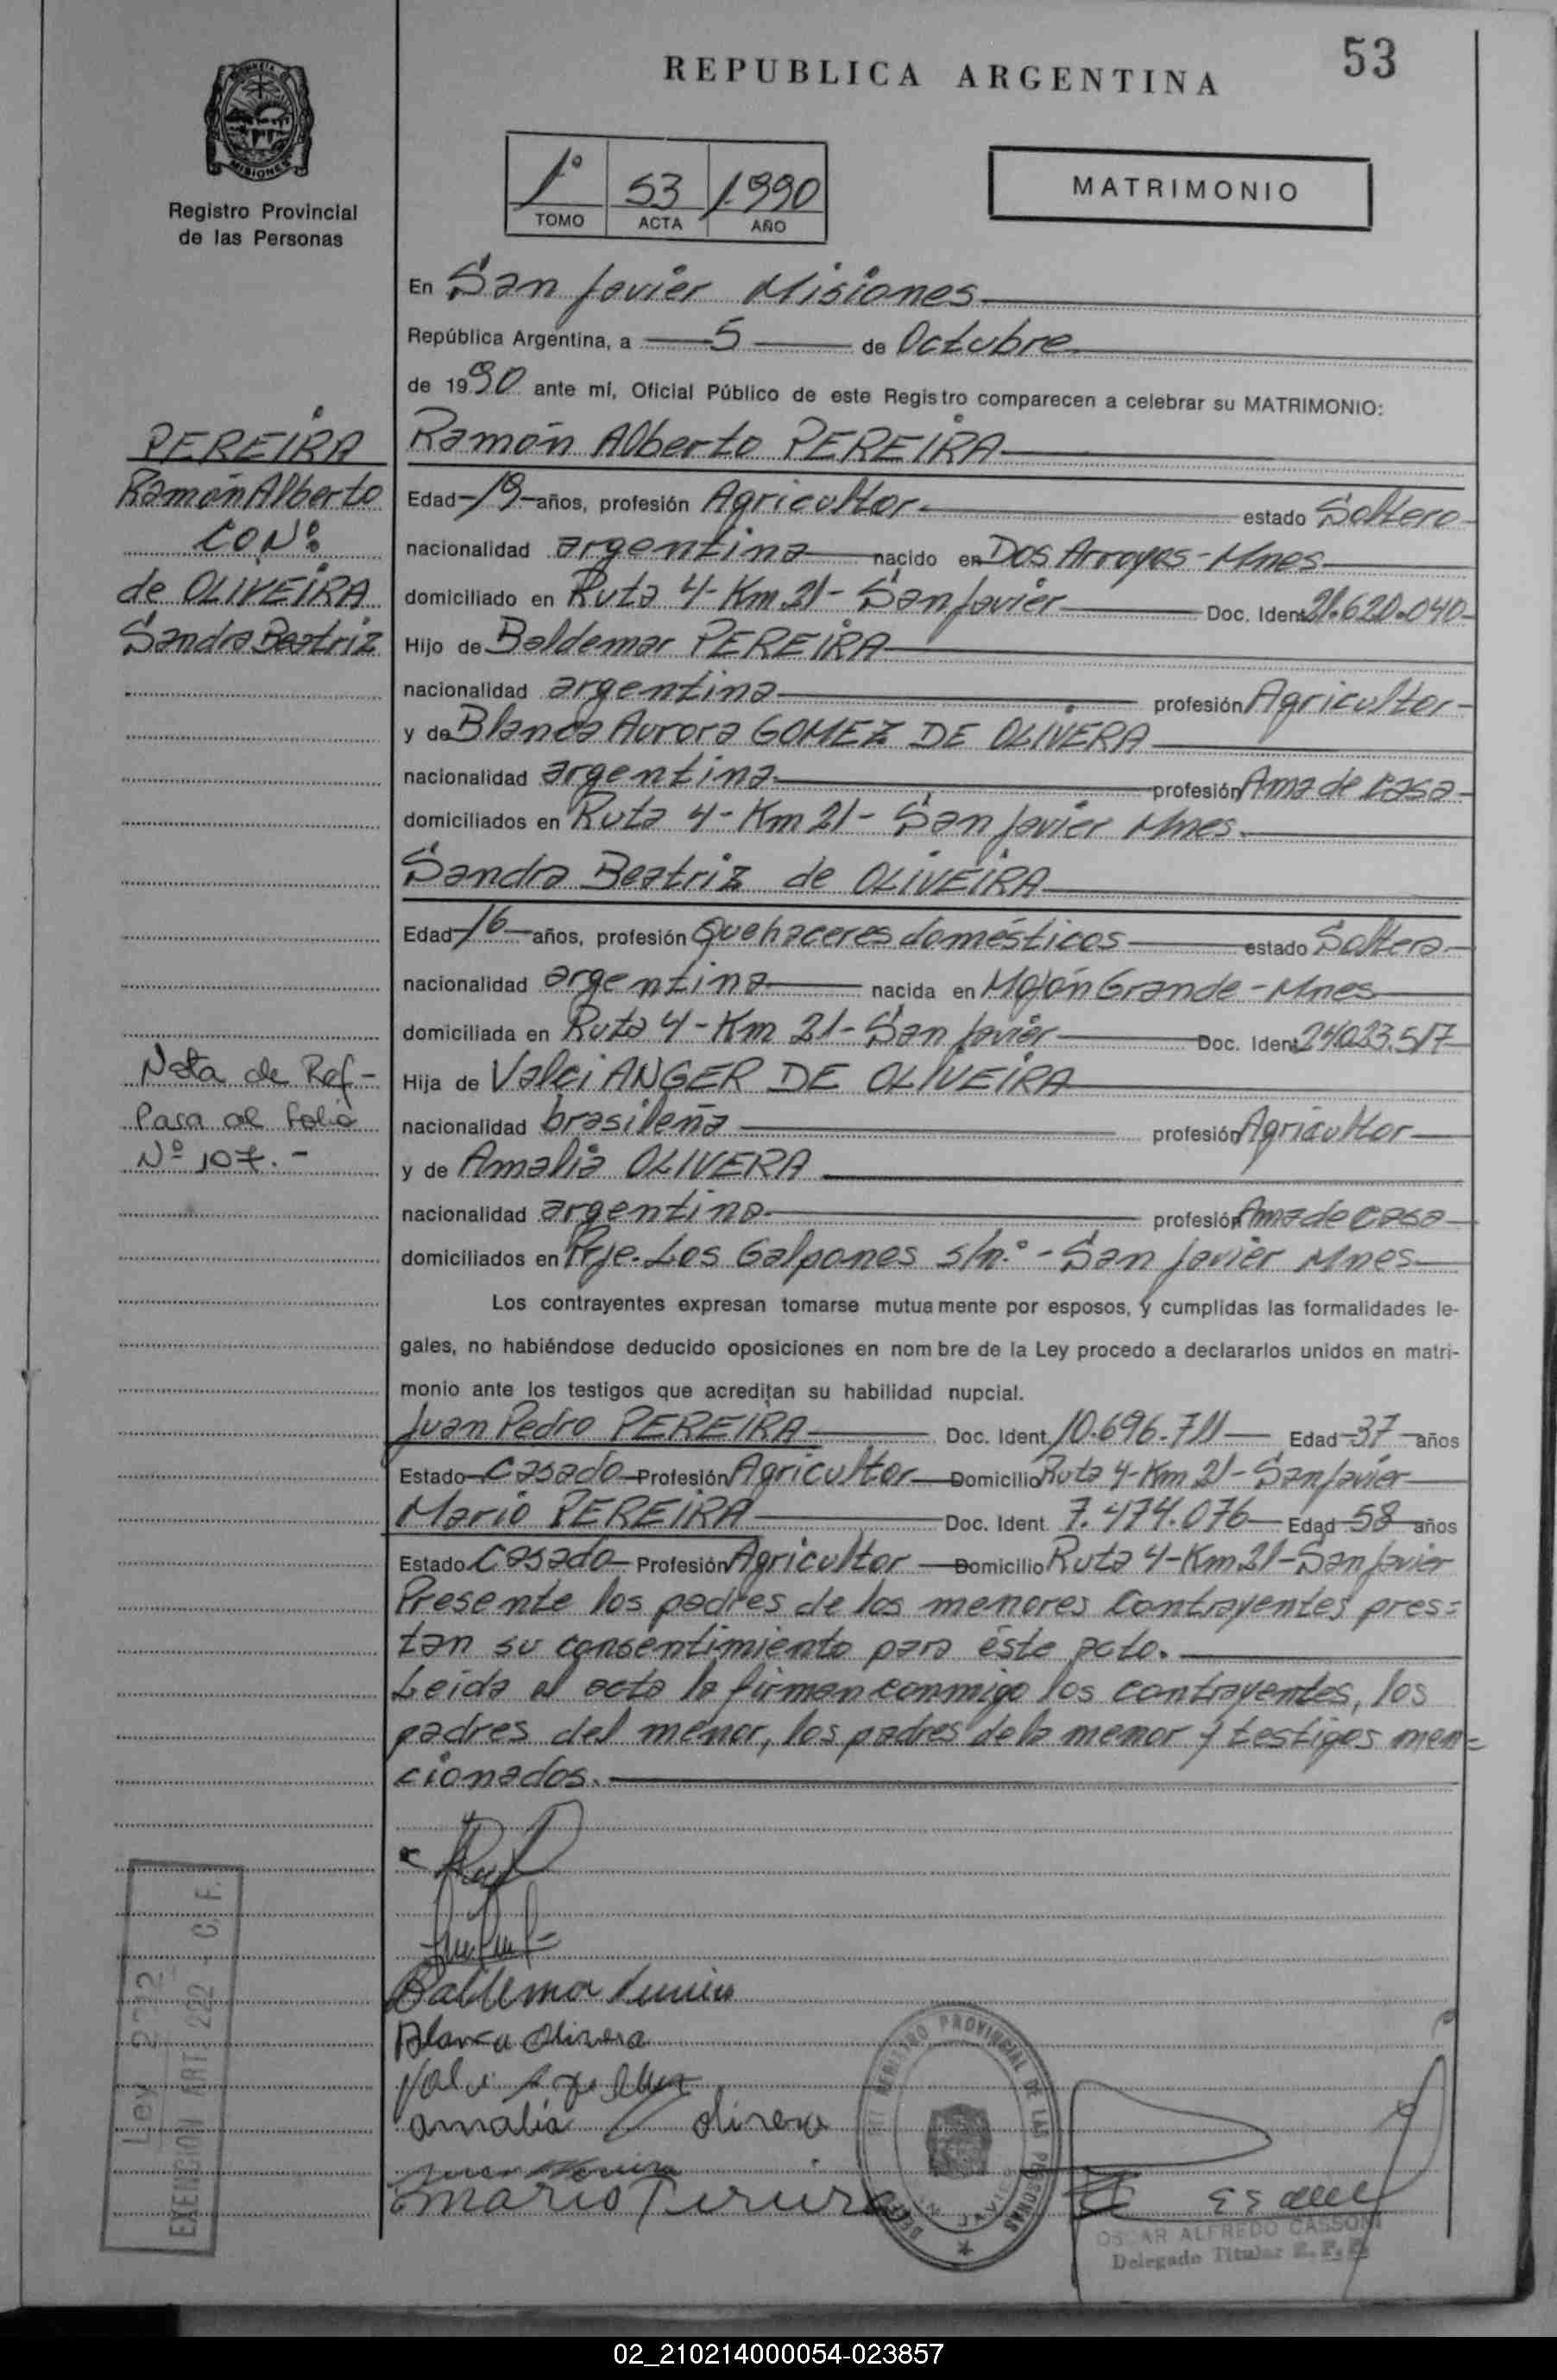 REPUBLICA ARGENTINA
53
MISIONES
Registro Provincial
de las Personas
1º 53 1990
TOMO ACTA AÑO
MATRIMONIO
En San Javier Misiones
República Argentina, a 5 de Octubre
de 1990 ante mí, Oficial Público de este Registro comparecen a celebrar su MATRIMONIO:
PEREIRA
Ramón Alberto
CON:
de OLIVEIRA
Sandra Beatriz
Ramón Alberto PEREIRA
Edad 19 años, profesión Agricultor estado Soltero
nacionalidad argentina nacido en Dos Arroyos - Mnes
domiciliado en Ruta 4 - Km 21 - San Javier Doc. Ident. 21.620.040
Hijo de Baldemar PEREIRA
nacionalidad argentina profesión Agricultor
y de Blanca Aurora GOMEZ DE OLIVERA
nacionalidad argentina profesión Ama de casa
domiciliados en Ruta 4 - Km 21 - San Javier Mnes.
Sandra Beatriz de OLIVEIRA
Edad 16 años, profesión Quehaceres domésticos estado Soltera
nacionalidad argentina nacida en Mojón Grande - Mnes
domiciliada en Ruta 4 - Km 21 - San Javier Doc. Ident. 24.023.517
Hija de Valci ANGER DE OLIVEIRA
nacionalidad brasileña profesión Agricultor
y de Amalia OLIVERA
nacionalidad argentina profesión Ama de casa
domiciliados en Pje. Los Galpones s/n.º - San Javier Mnes
Nota de Ref -
Pasa al folio
Nº 107. -
Los contrayentes expresan tomarse mutuamente por esposos, y cumplidas las formalidades le-
gales, no habiéndose deducido oposiciones en nombre de la Ley procedo a declararlos unidos en matri-
monio ante los testigos que acreditan su habilidad nupcial.
Juan Pedro PEREIRA Doc. Ident. 10.696.711 Edad 37 años
Estado Casado Profesión Agricultor Domicilio Ruta 4 - Km 21 - San Javier
Mario PEREIRA Doc. Ident. 7.474.076 Edad 58 años
Estado Casado Profesión Agricultor Domicilio Ruta 4 - Km 21 - San Javier
Presente los padres de los menores contrayentes pres=
tan su consentimiento para éste acto.
Leída el acta la firman conmigo los contrayentes, los
padres del menor, los padres de la menor y testigos men=
cionados.
Blanca Olivera
amalia olivera
mario
Ley
EXENCION ART. 222 - C. F.
REGISTRO PROVINCIAL DE LAS PERSONAS
OSCAR ALFREDO CASSONI
Delegado Titular
02_210214000054-023857